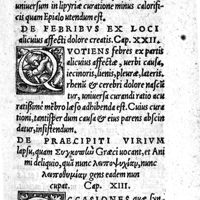 uniuersum in lipyriæ curatione minus calorifi-
cis quam Epialo utendum est.
DE FEBRIBVS EX LOCI
alicuius affecti dolore creatis. Cap. XXII.
QVOTIENS febres ex partis
alicuius affectæ, uerbi causa,
iecinoris, lienis, pleuræ, lateris,
rhenũ & cerebri dolore nascũ
tur, uniuersa curandi ratio ac cu
ratiõne mẽbro læso adhibenda est. Cuius cura
tioni, tantisper dum causa & eius parens abscin
datur, insistendum.
DE PRAECIPITI VIRIVM
lapsu, quam Græci uocant, et Ani
mi deliquio, quã nunc
nunc gens eadem nun
cupat. Cap. XIII.
OCCASIONES quæ